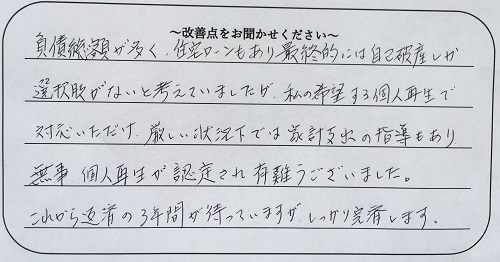 ～改善点をお聞かせください～
負債総額が多く、住宅ローンもあり最終的には自己破産しか
選択肢がないと考えていましたが、私の希望する個人再生で
対応いただけ、厳しい状況下では家計支出の指導もあり、
無事、個人再生が認定され有難うございました。
これから返済の3年間が待っていますが、しっかり完済します。